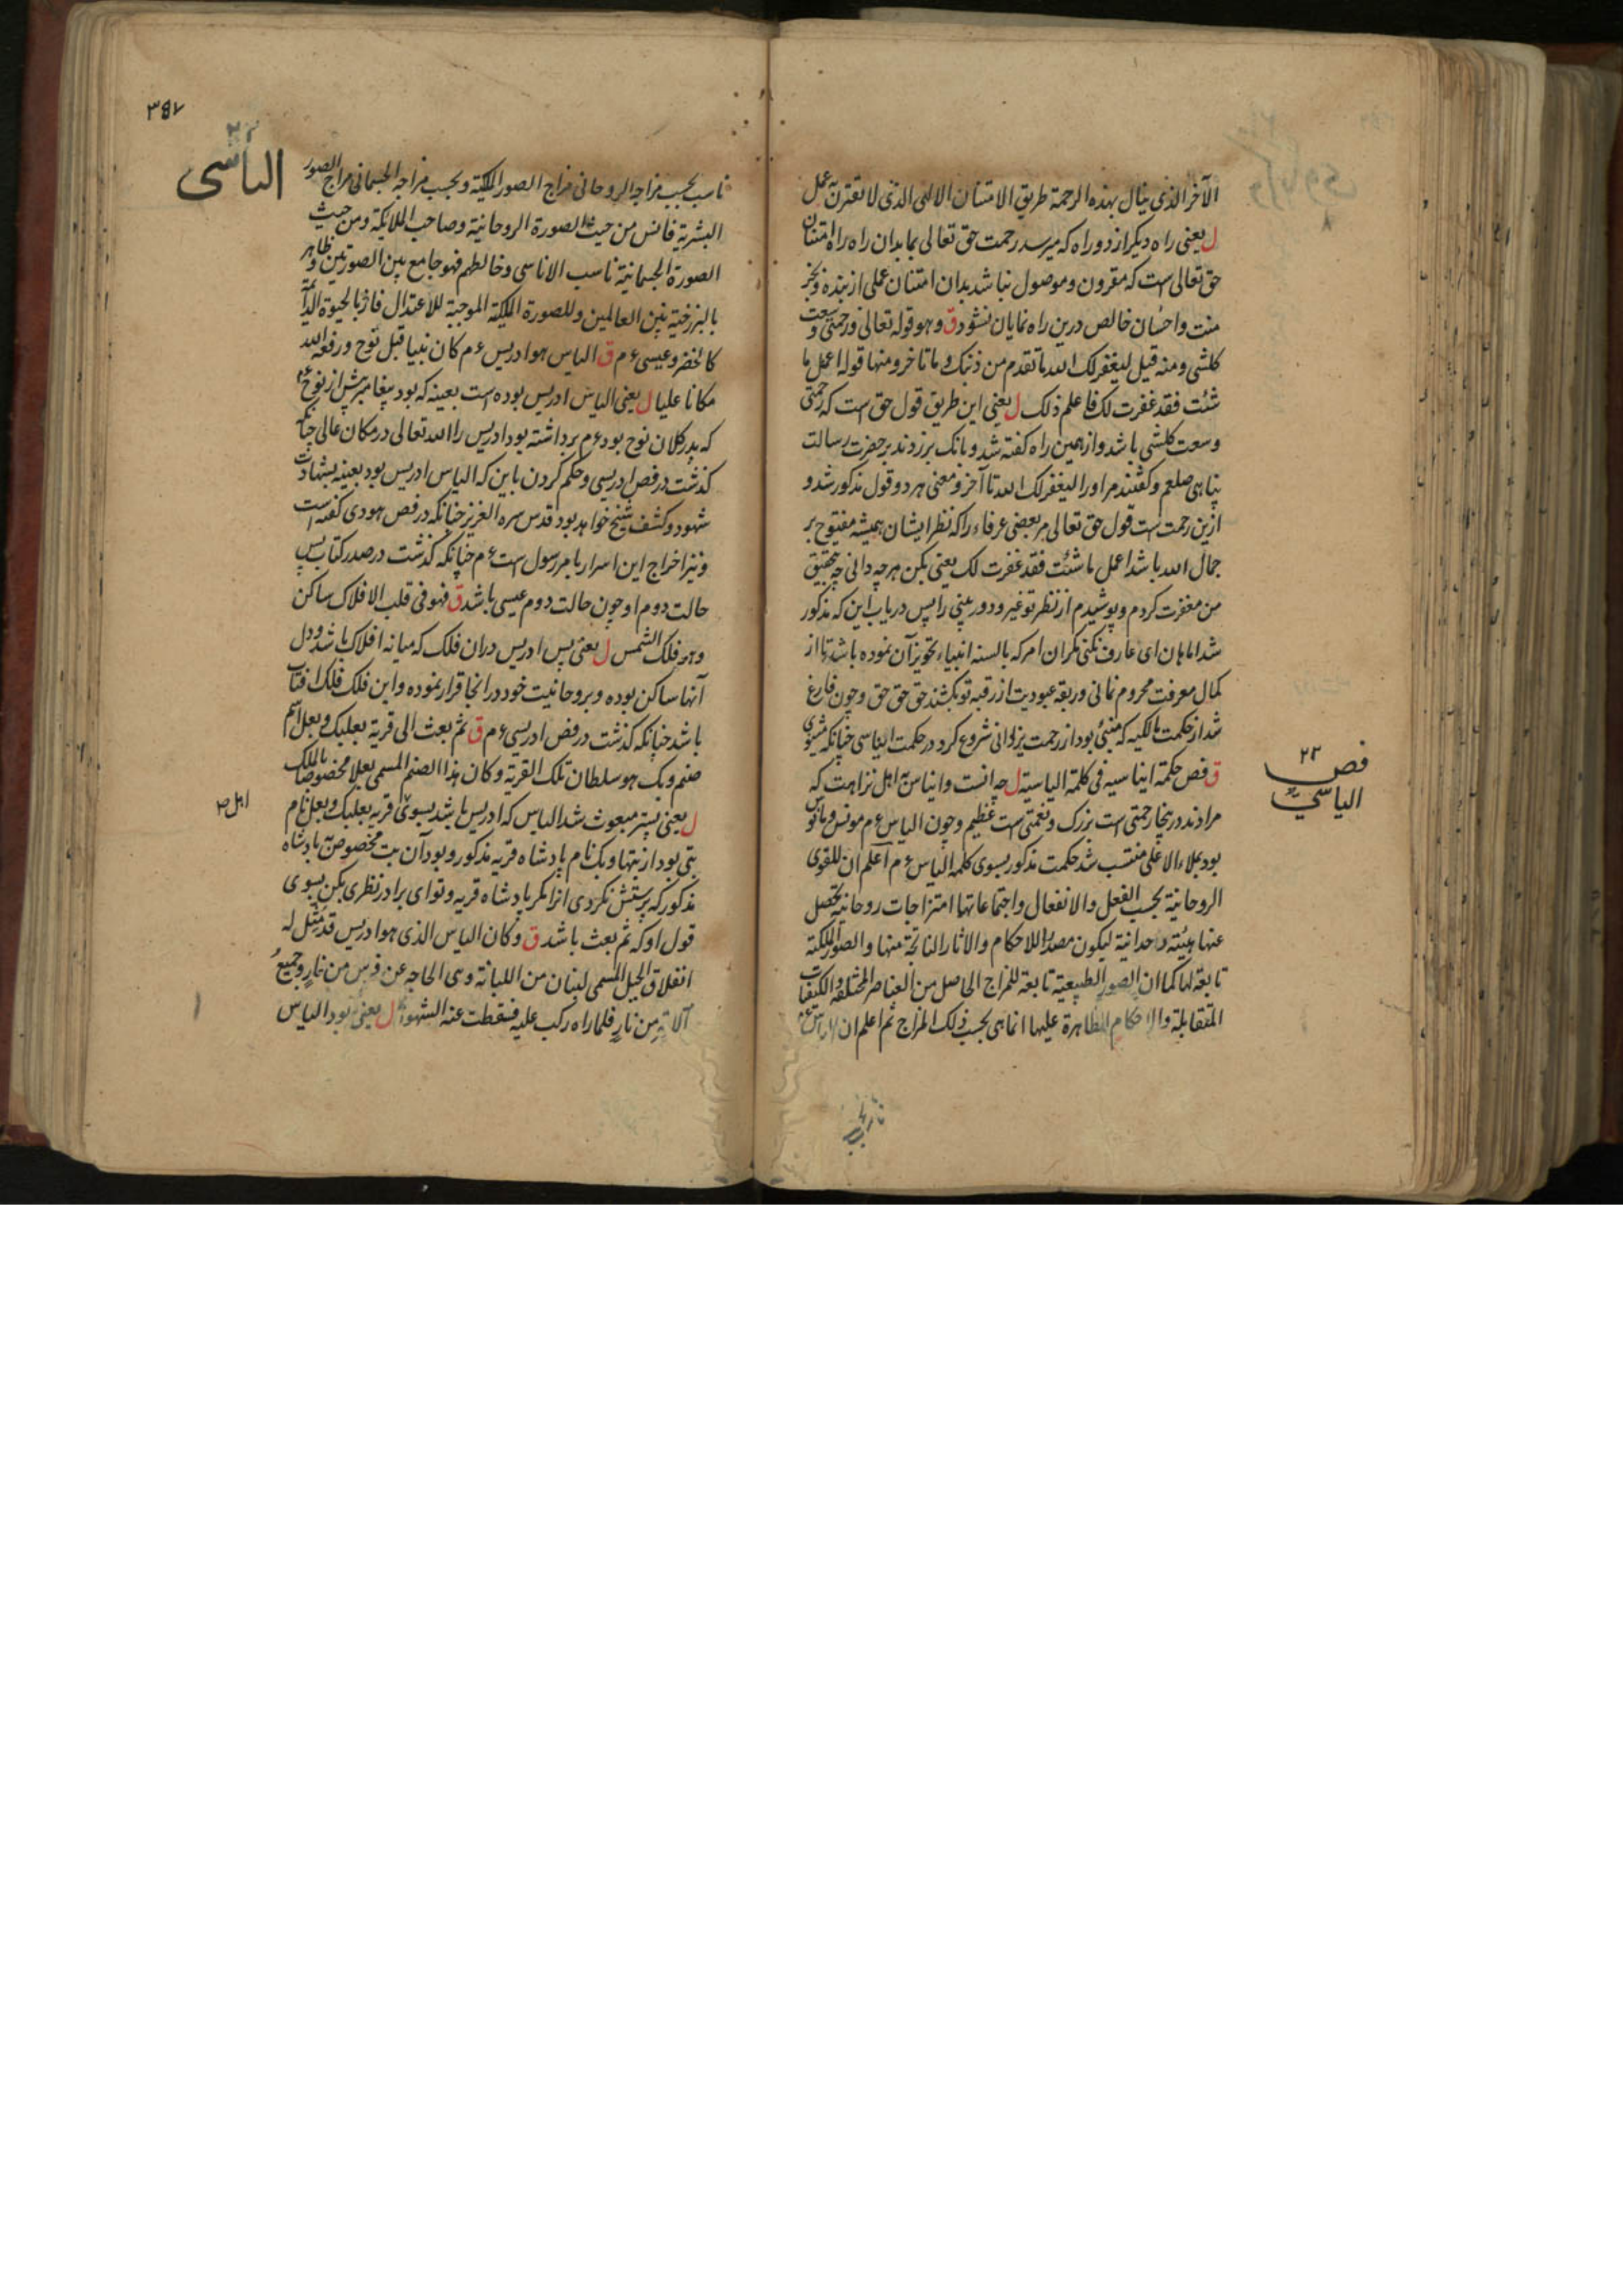 الآخر الذی ینال بهذه الرحمة طریق الامتنان الالهی الذی لا تقترن به عمل
ل یعنی راه دیگر از دو راه که میرسد رحمت حق تعالی بما بدان راه راه امتنان
حق تعالی است که مقرون و موصول نباشد بدان امتنان عملی از بنده و بجز
منت و احسان خالص درین راه نمایان نشود ق و هو قوله تعالی و رحمتی وسعت
کلشی و منه قیل لیغفر لک الله ما تقدم من ذنبک و ما تاخر و منها قوله اعمل ما
شئت فقد غفرت لک فاعلم ذلک ل یعنی این طریق قول حق است که رحمتی
وسعت کلشی باشد و از همین راه گفته شد و بانک برزدند بر حضرت رسالت
پناهی صلعم و گفتند مر او را لیغفر لک الله تا آخر و معنی هر دو قول مذکور شد و
ازین رحمت است قول حق تعالی مر بعضی عرفاء را که نظر ایشان همیشه مفتوح بر
جمال الله باشد اعمل ما شئت فقد غفرت لک یعنی بکن هرچه دانی چه بتحقیق
من مغفرت کردم و پوشیدم از نظر تو غیر و دوربینی را پس دریاب این که مذکور
شد اما هان ای عارف نکنی مگر ان امر که بالسنه انبیاء تجویز آن نموده باشد تا از
کمال معرفت محروم نمانی و ربقه عبودیت از رقبه تو نکشند حق حق حق و چون فارغ
شد از حکمت مالکیه که منبئی بود از رحمت یزدانی شروع کرد در حکمت ایناسی چنانکه میگوی
ق فص حکمة ایناسیه فی کلمة الیاسیة ل چه انست و ایناس به اهل نزاهت که
مرادند درینجا رحمتی است بزرگ و نعمتی است عظیم و چون الیاس ع م مونس و مانوس
بود بملاء الاعلی منتسب شد حکمت مذکور بسوی کلمه الیاس ع م اعلم ان للقوی
الروحانیة بحسب الفعل والانفعال واجتماعاتها امتزاجات روحانیة تحصل
عنها هیئة وحدانیة لیکون مصدرا للاحکام والاثار الناتجة منها والصور الملکیة
تابعة لها کما ان الصور الطبیعیة تابعة للمزاج الحاصل من العناصر المختلفة والکیفیات
المتقابلة والاحکام الظاهرة علیها انما هی بحسب ذلک المزاج ثم اعلم ان الیاس ع م
فص ۲۲
الیاسی
۳۵۷
۲۲
الیاسی
ناسب بحسب مزاجه الروحانی مزاج الصور الملکیة و بحسب مزاجه الجسمانی مزاج الصور
البشریة فانس من حیث الصورة الروحانیة وصاحب الملائکة ومن حیث
الصورة الجسمانیة ناسب الاناسی وخالطهم فهو جامع بین الصورتین وظاهر
بالبرزخیة بین العالمین وللصورة الملکیة الموجبة للاعتدال فاز بالحیوة الدائمة
کالخضر وعیسی ع م ق الیاس هو ادریس ع م کان نبیا قبل نوح ورفعه الله
مکانا علیا ل یعنی الیاس ادریس بوده است بعینه که بود پیغامبر پیش از نوح
که پدر کلان نوح بود ع م برداشته بود ادریس را الله تعالی در مکان عالی چنانکه
کذشت در فص ادریسی و حکم کردن باین که الیاس ادریس بود بعینه بشهادت
شهود و کشف شیخ خواهد بود قدس سره العزیز چنانکه در فص هودی گفته است
و نیز اخراج این اسرار بامر رسول است ع م چنانکه کذشت در صدر کتاب پس
حالت دوم او چون حالت دوم عیسی باشد ق فهو فی قلب الافلاک ساکن
وهو فلک الشمس ل یعنی پس ادریس دران فلک که میانه افلاک باشد و دل
آنها ساکن بوده و بروحانیت خود در انجا قرار نموده و این فلک فلک افتاب
باشد چنانکه کذشت در فص ادریسی ع م ق ثم بعث الی قریة بعلبک وبعل اسم
صنم وبک هو سلطان تلک القریة وکان هذا الصنم المسمی بعلا مخصوصا بالملک
ل یعنی پستر مبعوث شد الیاس که ادریس باشد بسوی قریه بعلبک و بعل نام
بتی بود از بتها و بک نام پادشاه قریه مذکور و بود آن بت مخصوص به پادشاه
مذکور که پرستش نکردی انرا مگر پادشاه قریه و تو ای برادر نظری بکن بسوی
قول او که ثم بعث باشد ق وکان الیاس الذی هو ادریس قد مثل له
انفلاق الجبل المسمی لبنان من اللبانة وهی الحاجة عن فرس من نار وجمیع
آلاته من نار فلما راه رکب علیه فسقطت عنه الشهوة ل یعنی بود الیاس
اهل